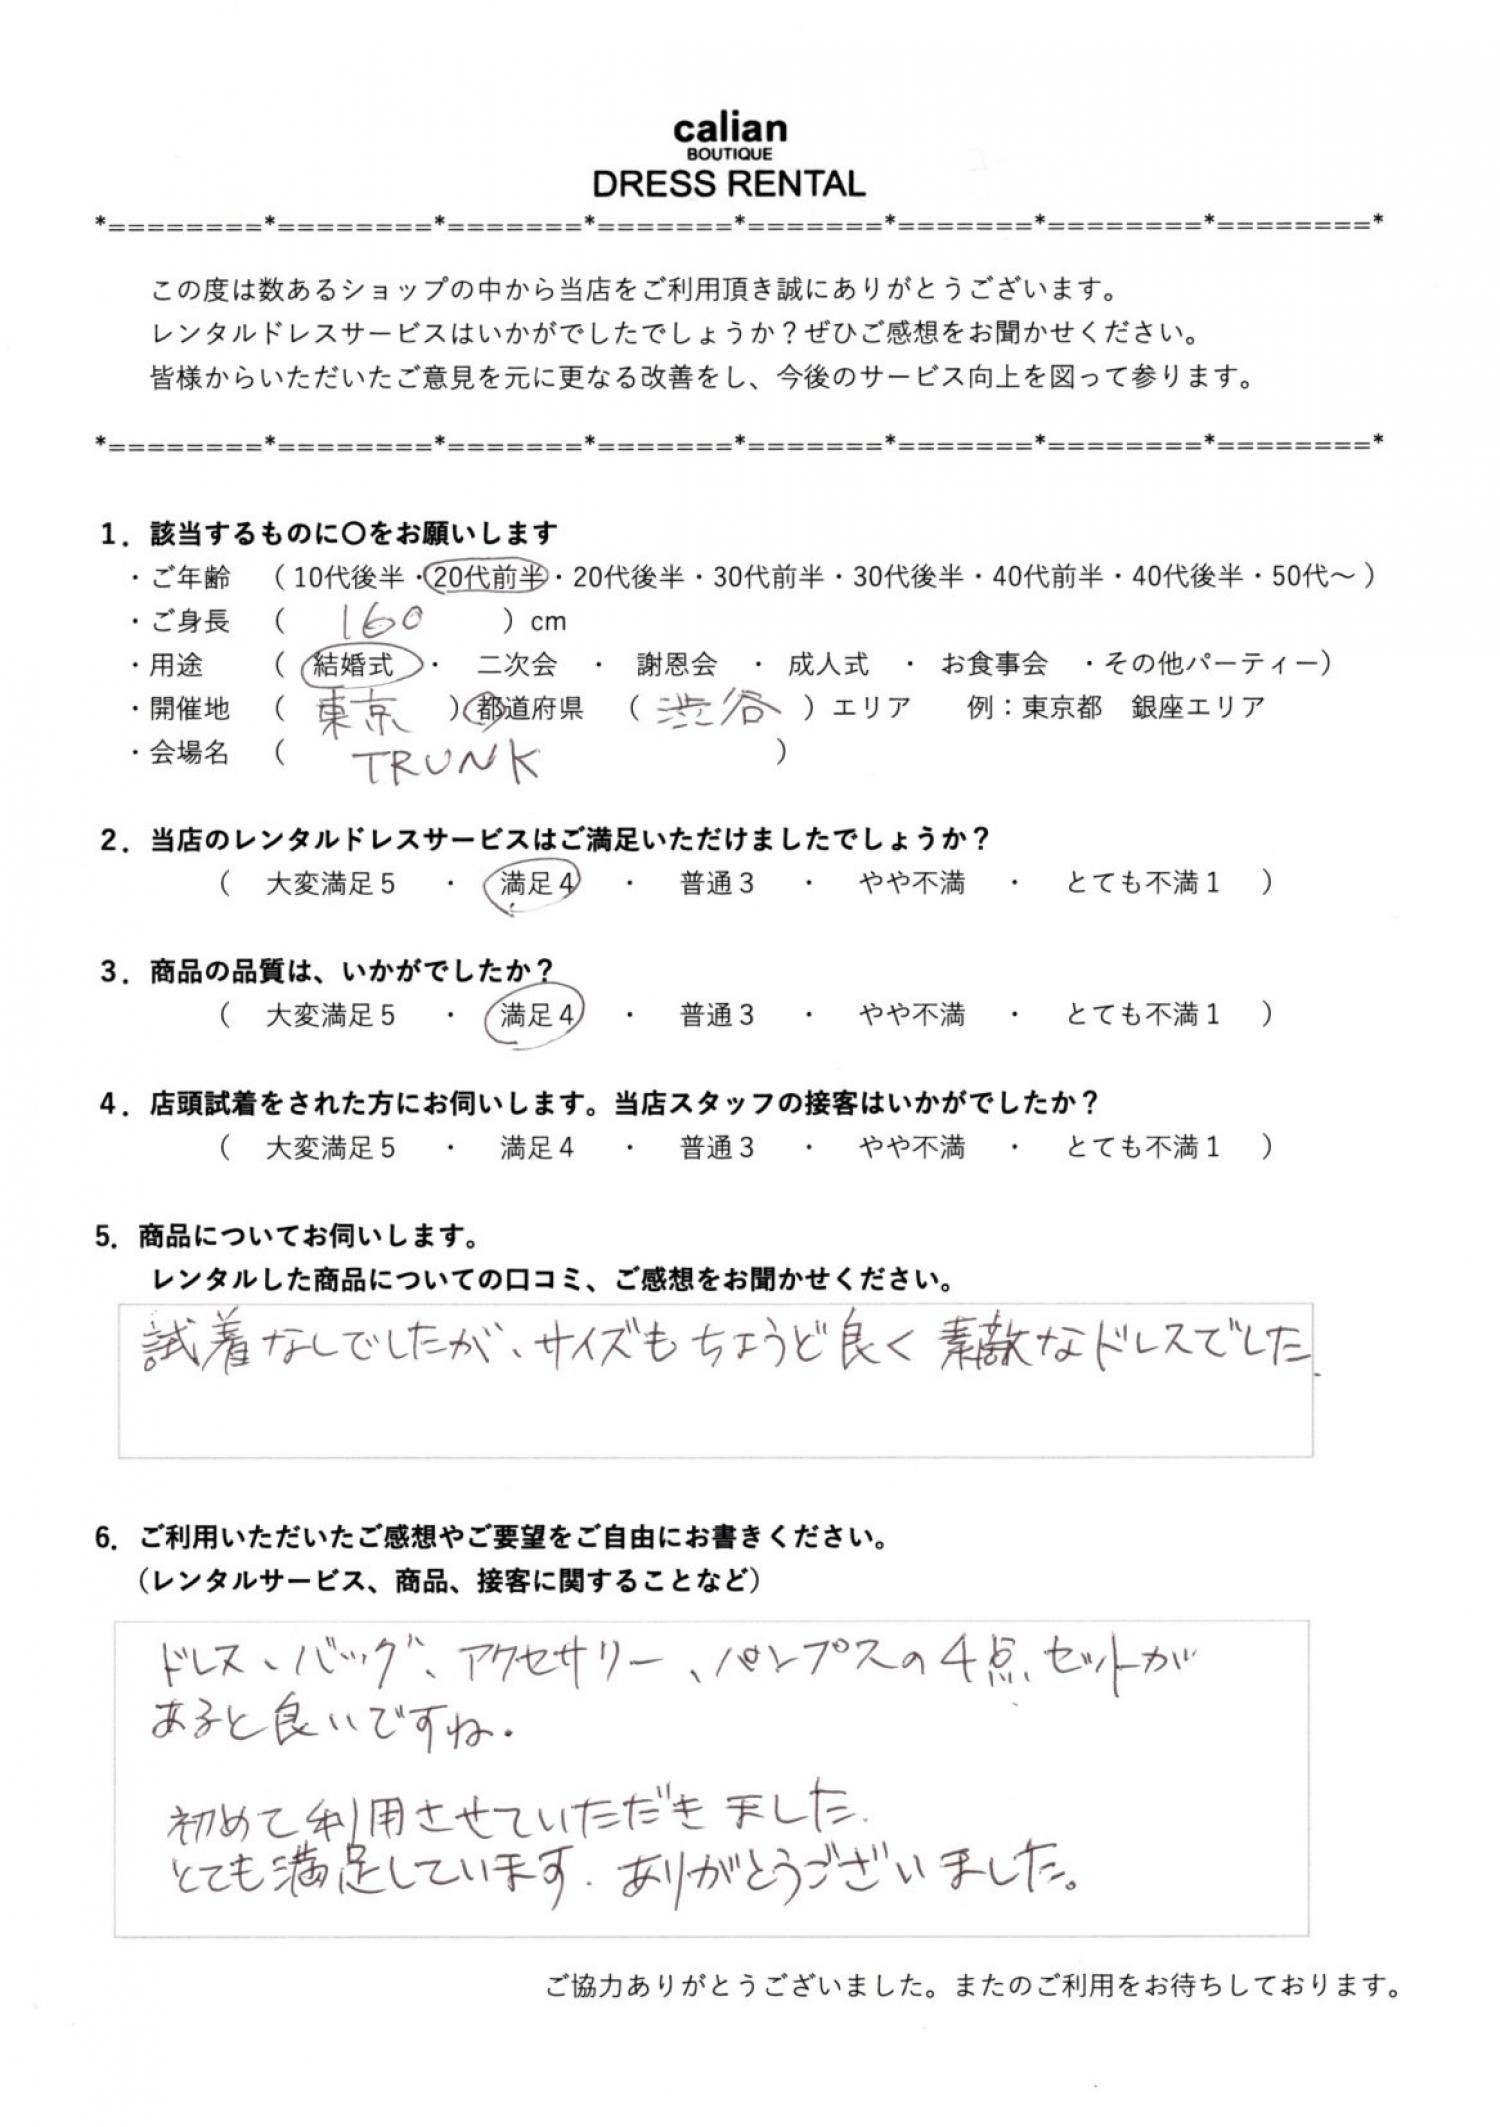 calian
BOUTIQUE
DRESS RENTAL
*========*========*=======*=======*=======*=======*========*========*
この度は数あるショップの中から当店をご利用頂き誠にありがとうございます。
レンタルドレスサービスはいかがでしたでしょうか？ぜひご感想をお聞かせください。
皆様からいただいたご意見を元に更なる改善をし、今後のサービス向上を図って参ります。
*========*========*=======*=======*=======*=======*========*========*
1．該当するものに〇をお願いします
・ご年齢 （ 10代後半・20代前半・20代後半・30代前半・30代後半・40代前半・40代後半・50代～ ）
・ご身長 （ 160 ）cm
・用途 （ 結婚式 ・ 二次会 ・ 謝恩会 ・ 成人式 ・ お食事会 ・その他パーティー）
・開催地 （ 東京 ）都道府県 （ 渋谷 ）エリア 例：東京都 銀座エリア
・会場名 （ TRUNK ）
2．当店のレンタルドレスサービスはご満足いただけましたでしょうか？
（ 大変満足５ ・ 満足４ ・ 普通３ ・ やや不満 ・ とても不満１ ）
3．商品の品質は、いかがでしたか？
（ 大変満足５ ・ 満足４ ・ 普通３ ・ やや不満 ・ とても不満１ ）
4．店頭試着をされた方にお伺いします。当店スタッフの接客はいかがでしたか？
（ 大変満足５ ・ 満足４ ・ 普通３ ・ やや不満 ・ とても不満１ ）
5．商品についてお伺いします。
レンタルした商品についての口コミ、ご感想をお聞かせください。
試着なしでしたが、サイズもちょうど良く素敵なドレスでした.
6．ご利用いただいたご感想やご要望をご自由にお書きください。
（レンタルサービス、商品、接客に関することなど）
ドレス、バッグ、アクセサリー、パンプスの4点セットが
あると良いですね.
初めて利用させていただきました.
とても満足しています. ありがとうございました。
ご協力ありがとうございました。またのご利用をお待ちしております。